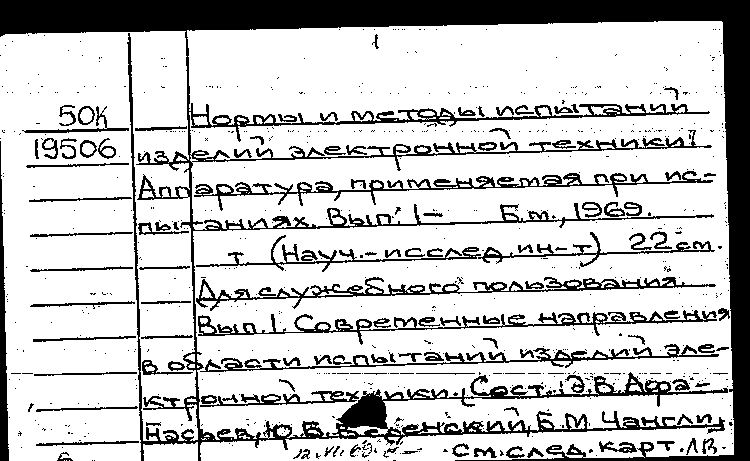 1
50К Нормы и методы испытаний
19506 изделий электронной техники.
Аппаратура, применяемая при ис-
пытаниях. Вып. 1- Б.м., 1969.
т. (Науч.-исслед. ин-т) 22 см.
Для служебного пользования.
Вып. 1. Современные направления
в области испытаний изделий эле-
ктронной техники. (Сост.: Э.В. Афа-
насьев, Ю.В. Веденский, Б.М. Чангли,
см. след. карт. Л.В.